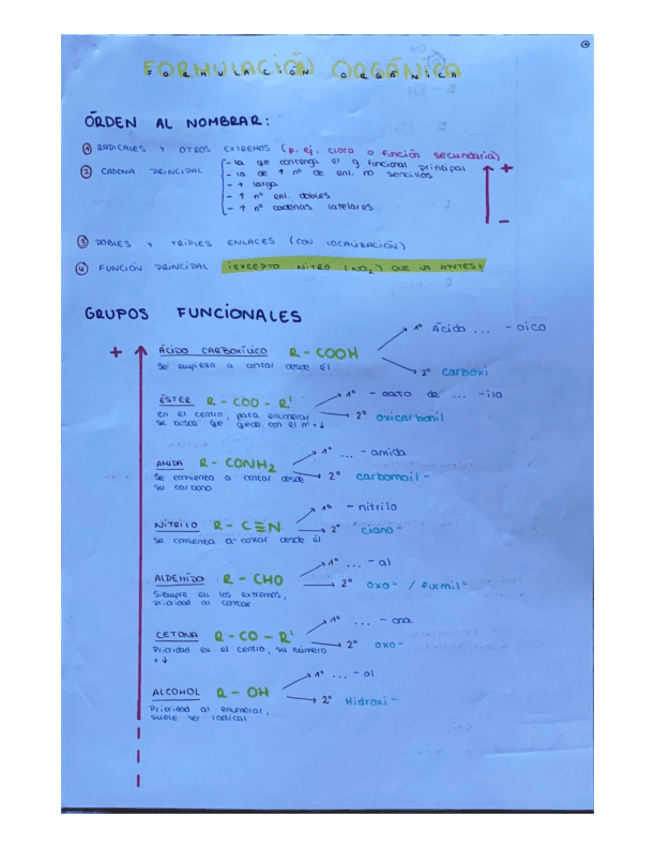 FORMULACIÓN ORGÁNICA
ÓRDEN AL NOMBRAR:
① RADICALES Y OTROS EXTREMOS (p. ej. cloro o función secundaria)
② CADENA PRINCIPAL
- la que contenga el g funcional principal
- la de ↑ nº de enl. no sencillos
- + larga
- ↑ nº enl. dobles
- ↑ nº cadenas laterales
+
-
③ DOBLES Y TRIPLES ENLACES (CON LOCALIZACIÓN)
④ FUNCIÓN PRINCIPAL ¡EXCEPTO NITRO (NO₂) QUE VA ANTES!
GRUPOS FUNCIONALES
+
ÁCIDO CARBOXÍLICO R - COOH
1º Ácido ... - oico
2º carboxi
Se empieza a contar desde él
ÉSTER R - COO - R'
1º - oato de ... - ilo
2º oxicarbonil
en el centro, para enumerar
se busca que quede con el nº + ↓
AMIDA R - CONH₂
1º ... - amida
2º carbamoil -
Se comienza a contar desde
su carbono
NITRILO R - C≡N
1º - nitrilo
2º ciano -
Se comienza a contar desde él
ALDEHÍDO R - CHO
1º ... - al
2º oxo - / furmil -
Siempre en los extremos,
prioridad al contar
CETONA R - CO - R'
1º ... - ona
2º oxo -
Prioridad en el centro, su número
+ ↓
ALCOHOL R - OH
1º ... - ol
2º Hidroxi -
Prioridad al enumerar,
suele ser radical